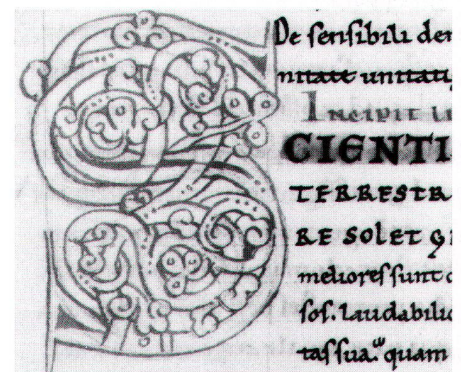 De sensibili der
nitate unitati
Incipit li
SCIENTI
TERRESTR
RE SOLET Q
meliores sunt
sos. Laudabilio
tas sua. quam